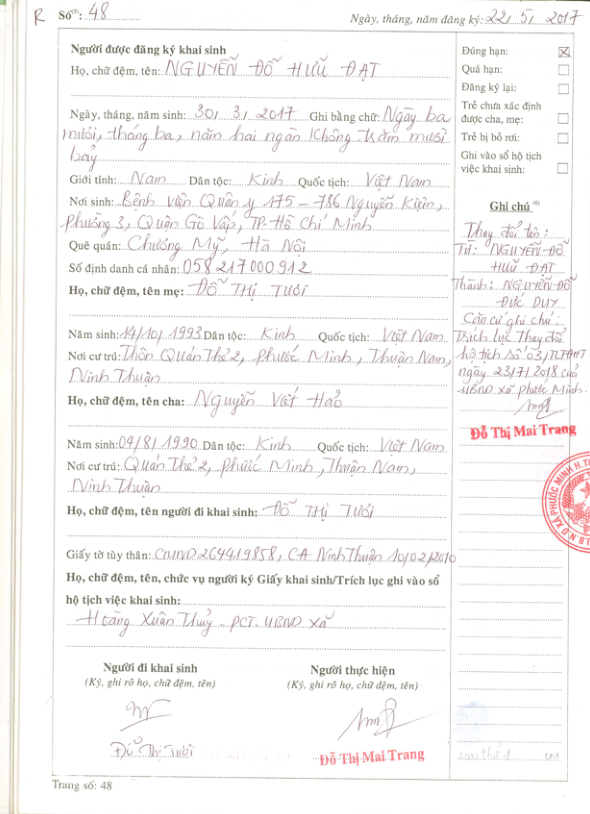 R Số⁽¹⁾: 48
Ngày, tháng, năm đăng ký: 22/5/2017
Người được đăng ký khai sinh
Họ, chữ đệm, tên: NGUYỄN ĐỖ HỮU ĐẠT
Ngày, tháng, năm sinh: 30/3/2017 Ghi bằng chữ: Ngày ba
mươi, tháng ba, năm hai ngàn không trăm mười
bảy
Giới tính: Nam Dân tộc: Kinh Quốc tịch: Việt Nam
Nơi sinh: Bệnh viện Quân y 175 – 786 Nguyễn Kiệm,
Phường 3, Quận Gò Vấp, TP. Hồ Chí Minh
Quê quán: Chương Mỹ, Hà Nội
Số định danh cá nhân: 058217000912
Họ, chữ đệm, tên mẹ: ĐỖ THỊ TƯƠI
Năm sinh: 14/10/1993 Dân tộc: Kinh Quốc tịch: Việt Nam
Nơi cư trú: Thôn Quán Thẻ 2, Phước Minh, Thuận Nam,
Ninh Thuận
Họ, chữ đệm, tên cha: Nguyễn Viết Hảo
Năm sinh: 04/8/1990 Dân tộc: Kinh Quốc tịch: Việt Nam
Nơi cư trú: Quán Thẻ 2, Phước Minh, Thuận Nam,
Ninh Thuận
Họ, chữ đệm, tên người đi khai sinh: ĐỖ THỊ TƯƠI
Giấy tờ tùy thân: CMND 264419858, CA Ninh Thuận 10/02/2010
Họ, chữ đệm, tên, chức vụ người ký Giấy khai sinh/Trích lục ghi vào sổ
hộ tịch việc khai sinh:
Hoàng Xuân Thuỷ - PCT. UBND xã
Người đi khai sinh
(Ký, ghi rõ họ, chữ đệm, tên)
Đỗ Thị Tươi
Người thực hiện
(Ký, ghi rõ họ, chữ đệm, tên)
Đỗ Thị Mai Trang
Đúng hạn:
Quá hạn:
Đăng ký lại:
Trẻ chưa xác định
được cha, mẹ:
Trẻ bị bỏ rơi:
Ghi vào sổ hộ tịch
việc khai sinh:
Ghi chú
Thay đổi tên:
Từ: NGUYỄN ĐỖ
HỮU ĐẠT
Thành: NGUYỄN ĐỖ
ĐỨC DUY
Căn cứ ghi chú:
Trích lục Thay đổi
hộ tịch số 03/TLTĐHT
ngày 23/7/2018 của
UBND xã Phước Minh.
Đỗ Thị Mai Trang
U.B.N.D XÃ PHƯỚC MINH H.T
Trang số: 48